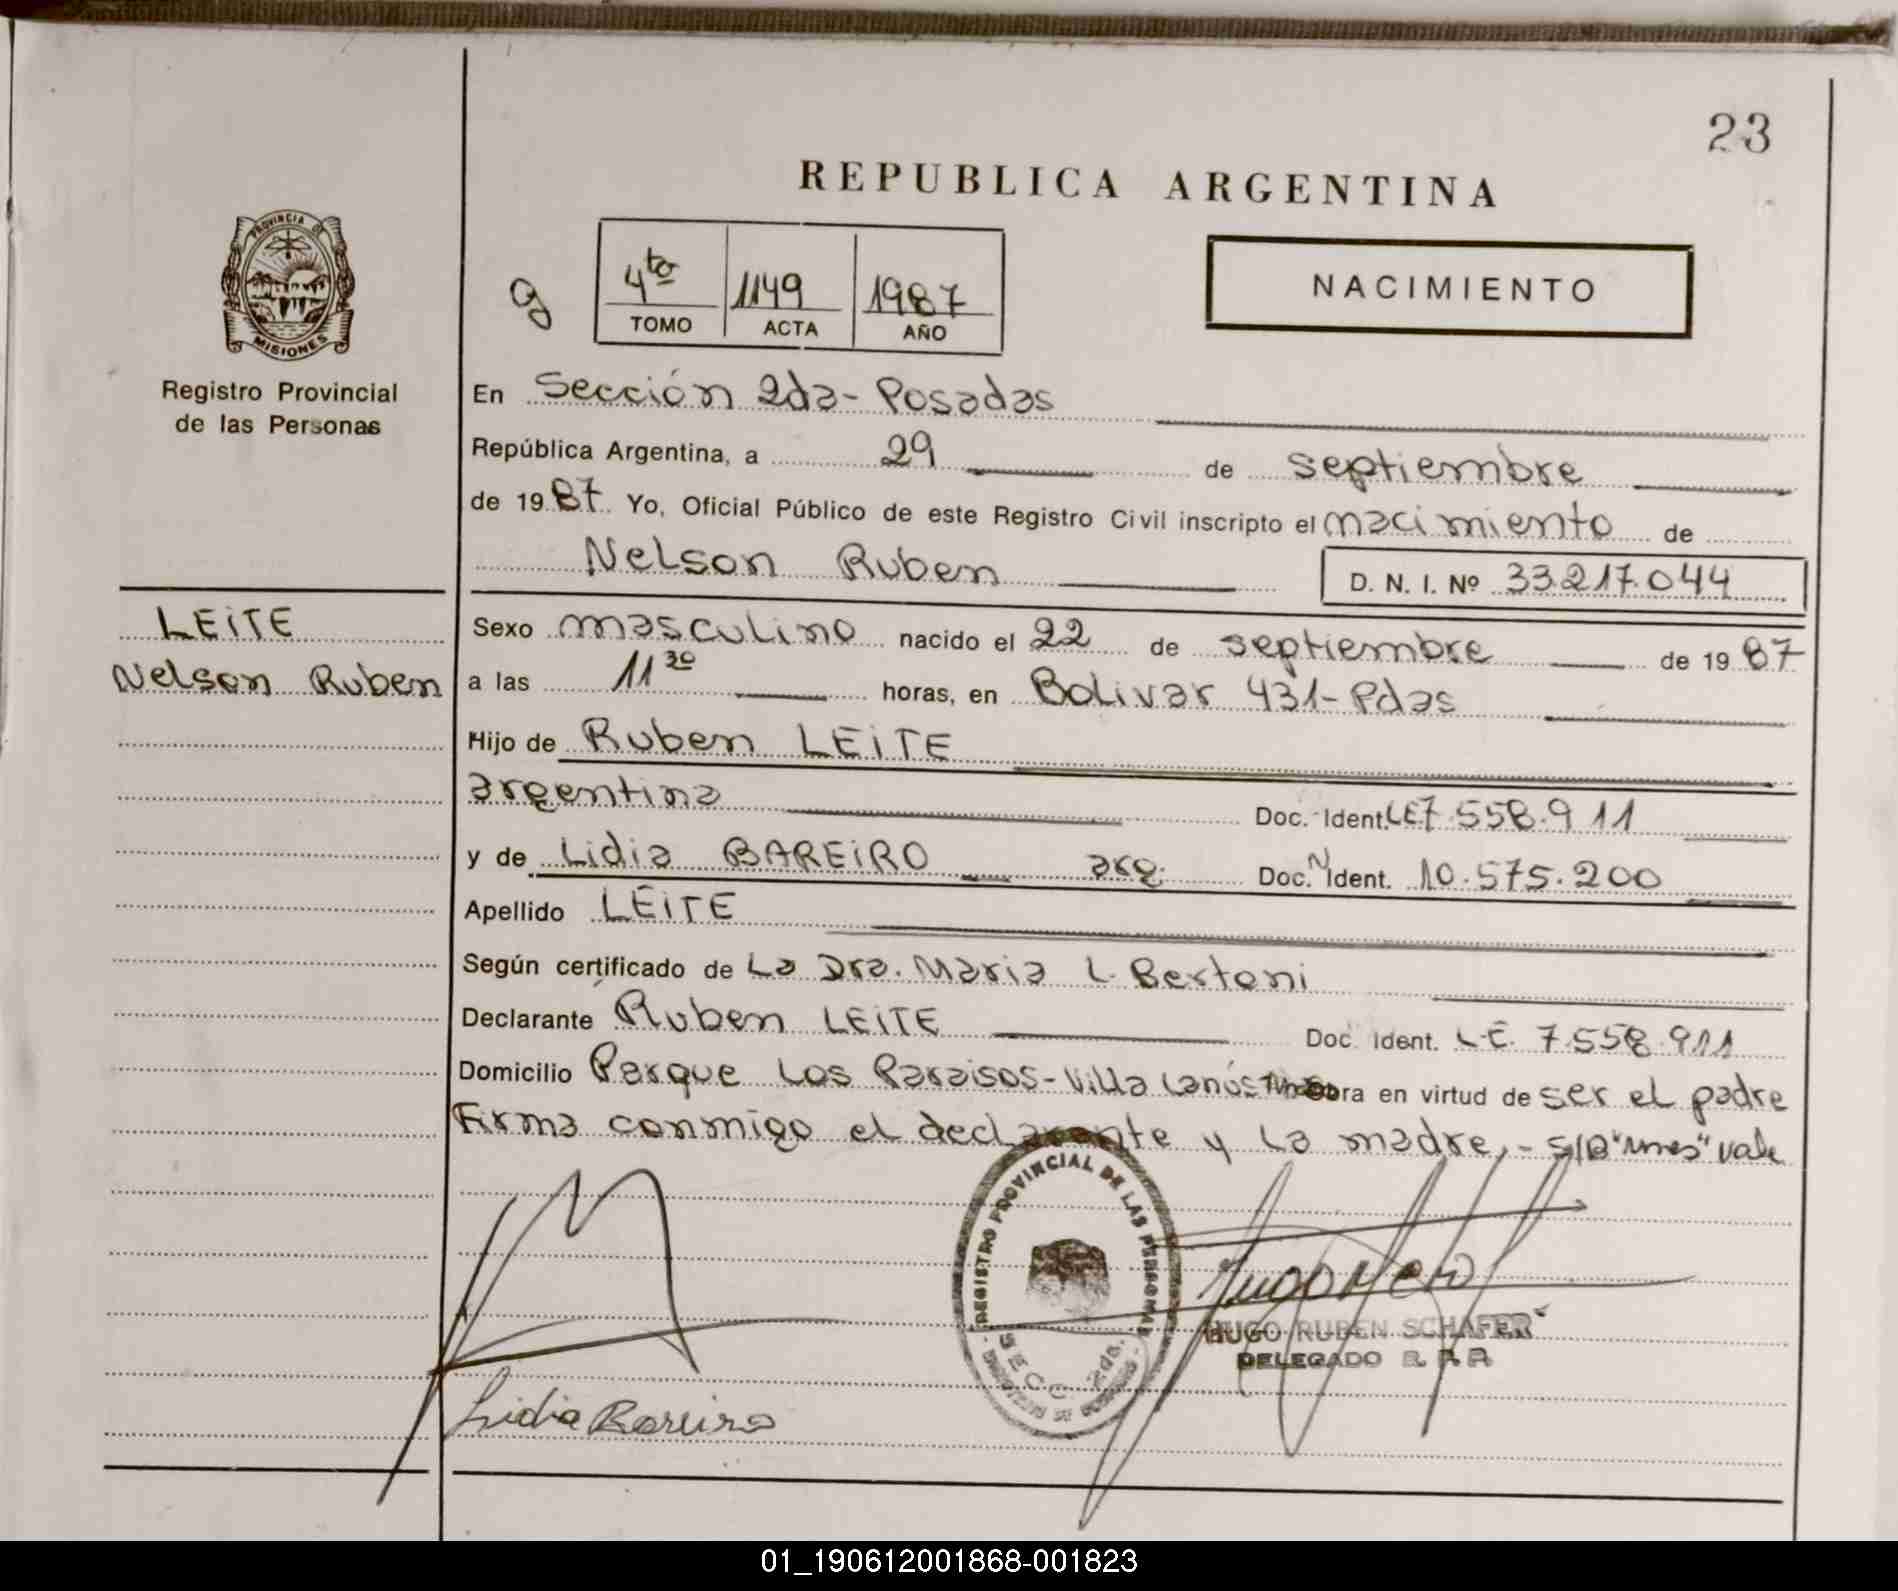 23
REPUBLICA ARGENTINA
PROVINCIA DE
MISIONES
4to 1149 1987
TOMO ACTA AÑO
NACIMIENTO
Registro Provincial
de las Personas
LEITE
Nelson Ruben
En Sección 2da- Posadas
República Argentina, a 29 de septiembre
de 1987 Yo, Oficial Público de este Registro Civil inscripto el nacimiento de
Nelson Ruben D. N. I. Nº 33.217.044
Sexo masculino nacido el 22 de septiembre de 1987
a las 11 30 horas, en Bolivar 431- Pdas
Hijo de Ruben LEITE
argentino Doc. Ident. LE 7.558.911
y de Lidia BAREIRO arg. Doc. N Ident. 10.575.200
Apellido LEITE
Según certificado de La Dra. Maria L. Bertoni
Declarante Ruben LEITE Doc. Ident. L.E. 7.558.911
Domicilio Parque Los Paraisos- Villa Lanús obra en virtud de ser el padre
Firma conmigo el declarante y la madre.- S/B "Mnes" vale
REGISTRO PROVINCIAL DE LAS PERSONAS
SECC. 2da.
HUGO RUBEN SCHAFER
DELEGADO R. P. P.
Lidia Bareiro
01_190612001868-001823